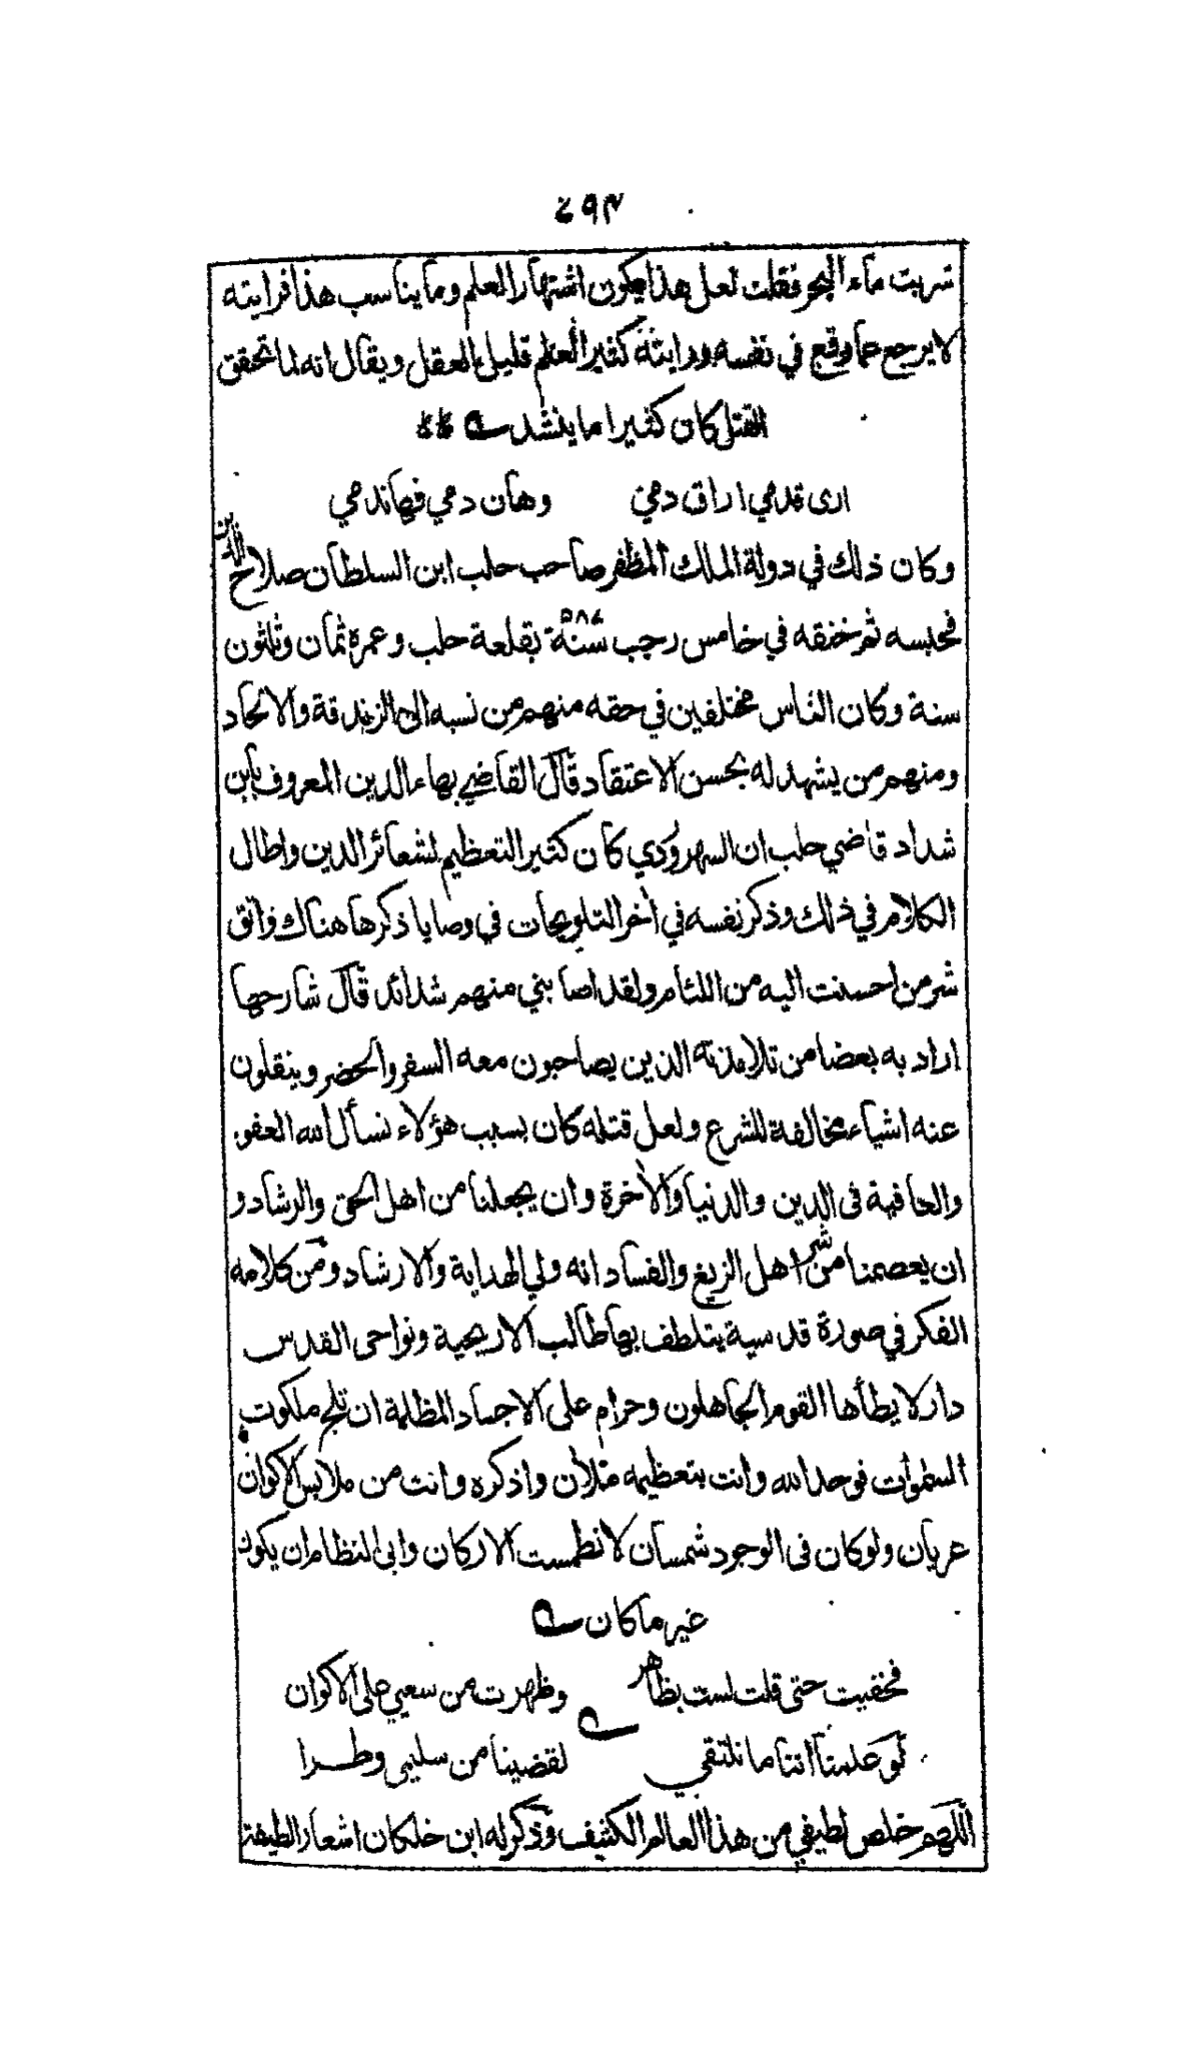 ٤٩٣
شربت ماء البحر فقلت لعل هذا يكون اشتهار العلم وما يناسب هذا فرايته
لا يرجع عما وقع في نفسه ورايته كثير العلم قليل العقل ويقال انه لما تحقق
القتل كان كثيرا ما ينشد
ارى قدمي اراق دمي وهان دمي فها ندمي
وكان ذلك في دولة الملك المظفر صاحب حلب ابن السلطان صلاح الدين
فحبسه ثم خنقه في خامس رجب سنة ٥٨٤ بقلعة حلب وعمره ثمان وثلثون
سنة وكان الناس مختلفين في حقه منهم من نسبه الى الزندقة والالحاد
ومنهم من يشهد له بحسن الاعتقاد قال القاضي بهاء الدين المعروف بابن
شداد قاضي حلب ان السهروردي كان كثير التعظيم لشعائر الدين واطال
الكلام في ذلك وذكر نفسه في اخر التلويحات في وصايا ذكرها هناك فاتق
شر من احسنت اليه من اللئام ولقد اصابني منهم شدائد قال شارحها
اراد به بعضا من تلامذته الذين يصاحبون معه السفر والحضر وينقلون
عنه اشياء مخالفة للشرع ولعل قتله كان بسبب هؤلاء نسأل الله العفو
والعافية في الدين والدنيا والاخرة وان يجعلنا من اهل الحق والرشاد و
ان يعصمنا من شر اهل الزيغ والفساد انه ولي الهداية والارشاد ومن كلامه
الفكر في صورة قدسية يتلطف بها طالب الاريحية ونواحى القدس
دار لا يطأها القوم الجاهلون وحرام على الاجساد المظلمة ان تلج ملكوت
السموات فوحد الله وانت بتعظيمه ملآن واذكره وانت من ملابس الاكوان
عريان ولو كان فى الوجود شمسان لانطمست الاركان وابى النظام ان يكون
غير ما كان
فخفيت حتى قلت لست بظاهر وظهرت من سعيي على الاكوان
لو علمنا اننا ما نلتقي لقضينا من سليمى وطرا
اللهم خلص لطيفي من هذا العالم الكثيف وذكر له ابن خلكان اشعارا لطيفة